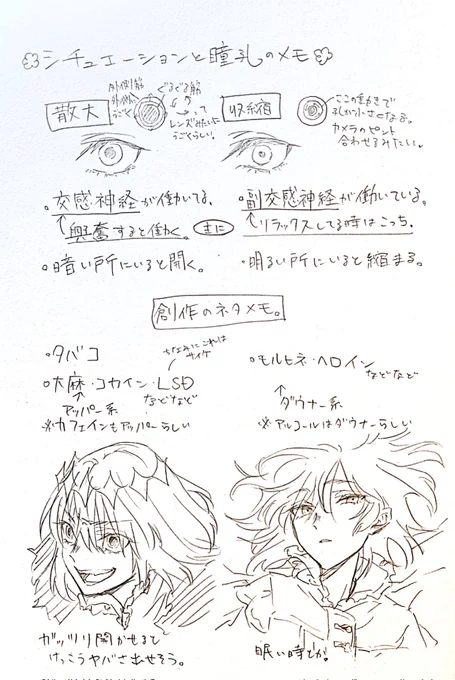 シチュエーションと瞳孔のメモ
散大
外側筋
外側に
うごく
ぐるぐる筋
って
レンズみたいに
うごくらしい。
収縮
ここの動きで
孔が小さくなる。
カメラのピント
合わせるみたい。
・交感神経が働いてる。
↑興奮すると働く。
主に
・副交感神経が働いている。
↑リラックスしてる時はこっち。
・暗い所にいると開く。
・明るい所にいると縮まる。
創作のネタメモ。
・タバコ
ちなみにこれは
サイケ
・大麻・コカイン・LSD
などなど
↑
アッパー系
※カフェインもアッパーらしい
・モルヒネ・ヘロイン
などなど
↑
ダウナー系
※アルコールはダウナーらしい
ガッツリ開かせると
けっこうヤバさ出せそう。
眠い時とか。